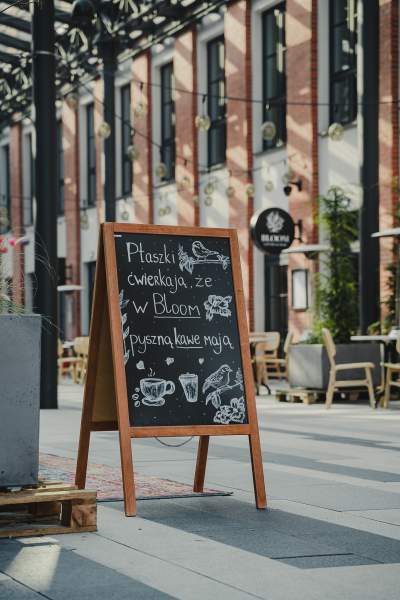 Ptaszki
ćwierkają, że
w Bloom
pyszną kawe mają
BLOOM